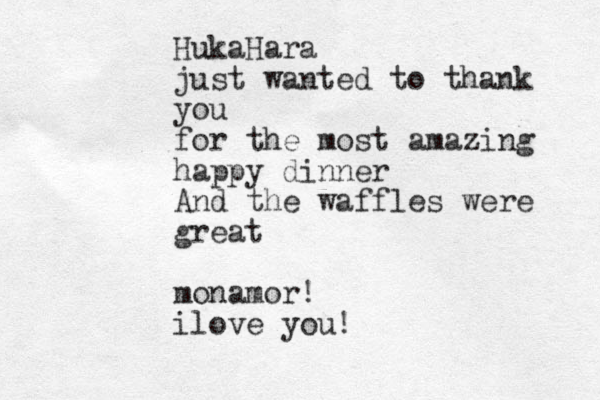 HukaHara
just wanted to thank
you
for the most amazing
happy dinner
And the waffles were
great

monamor!
ilove you!